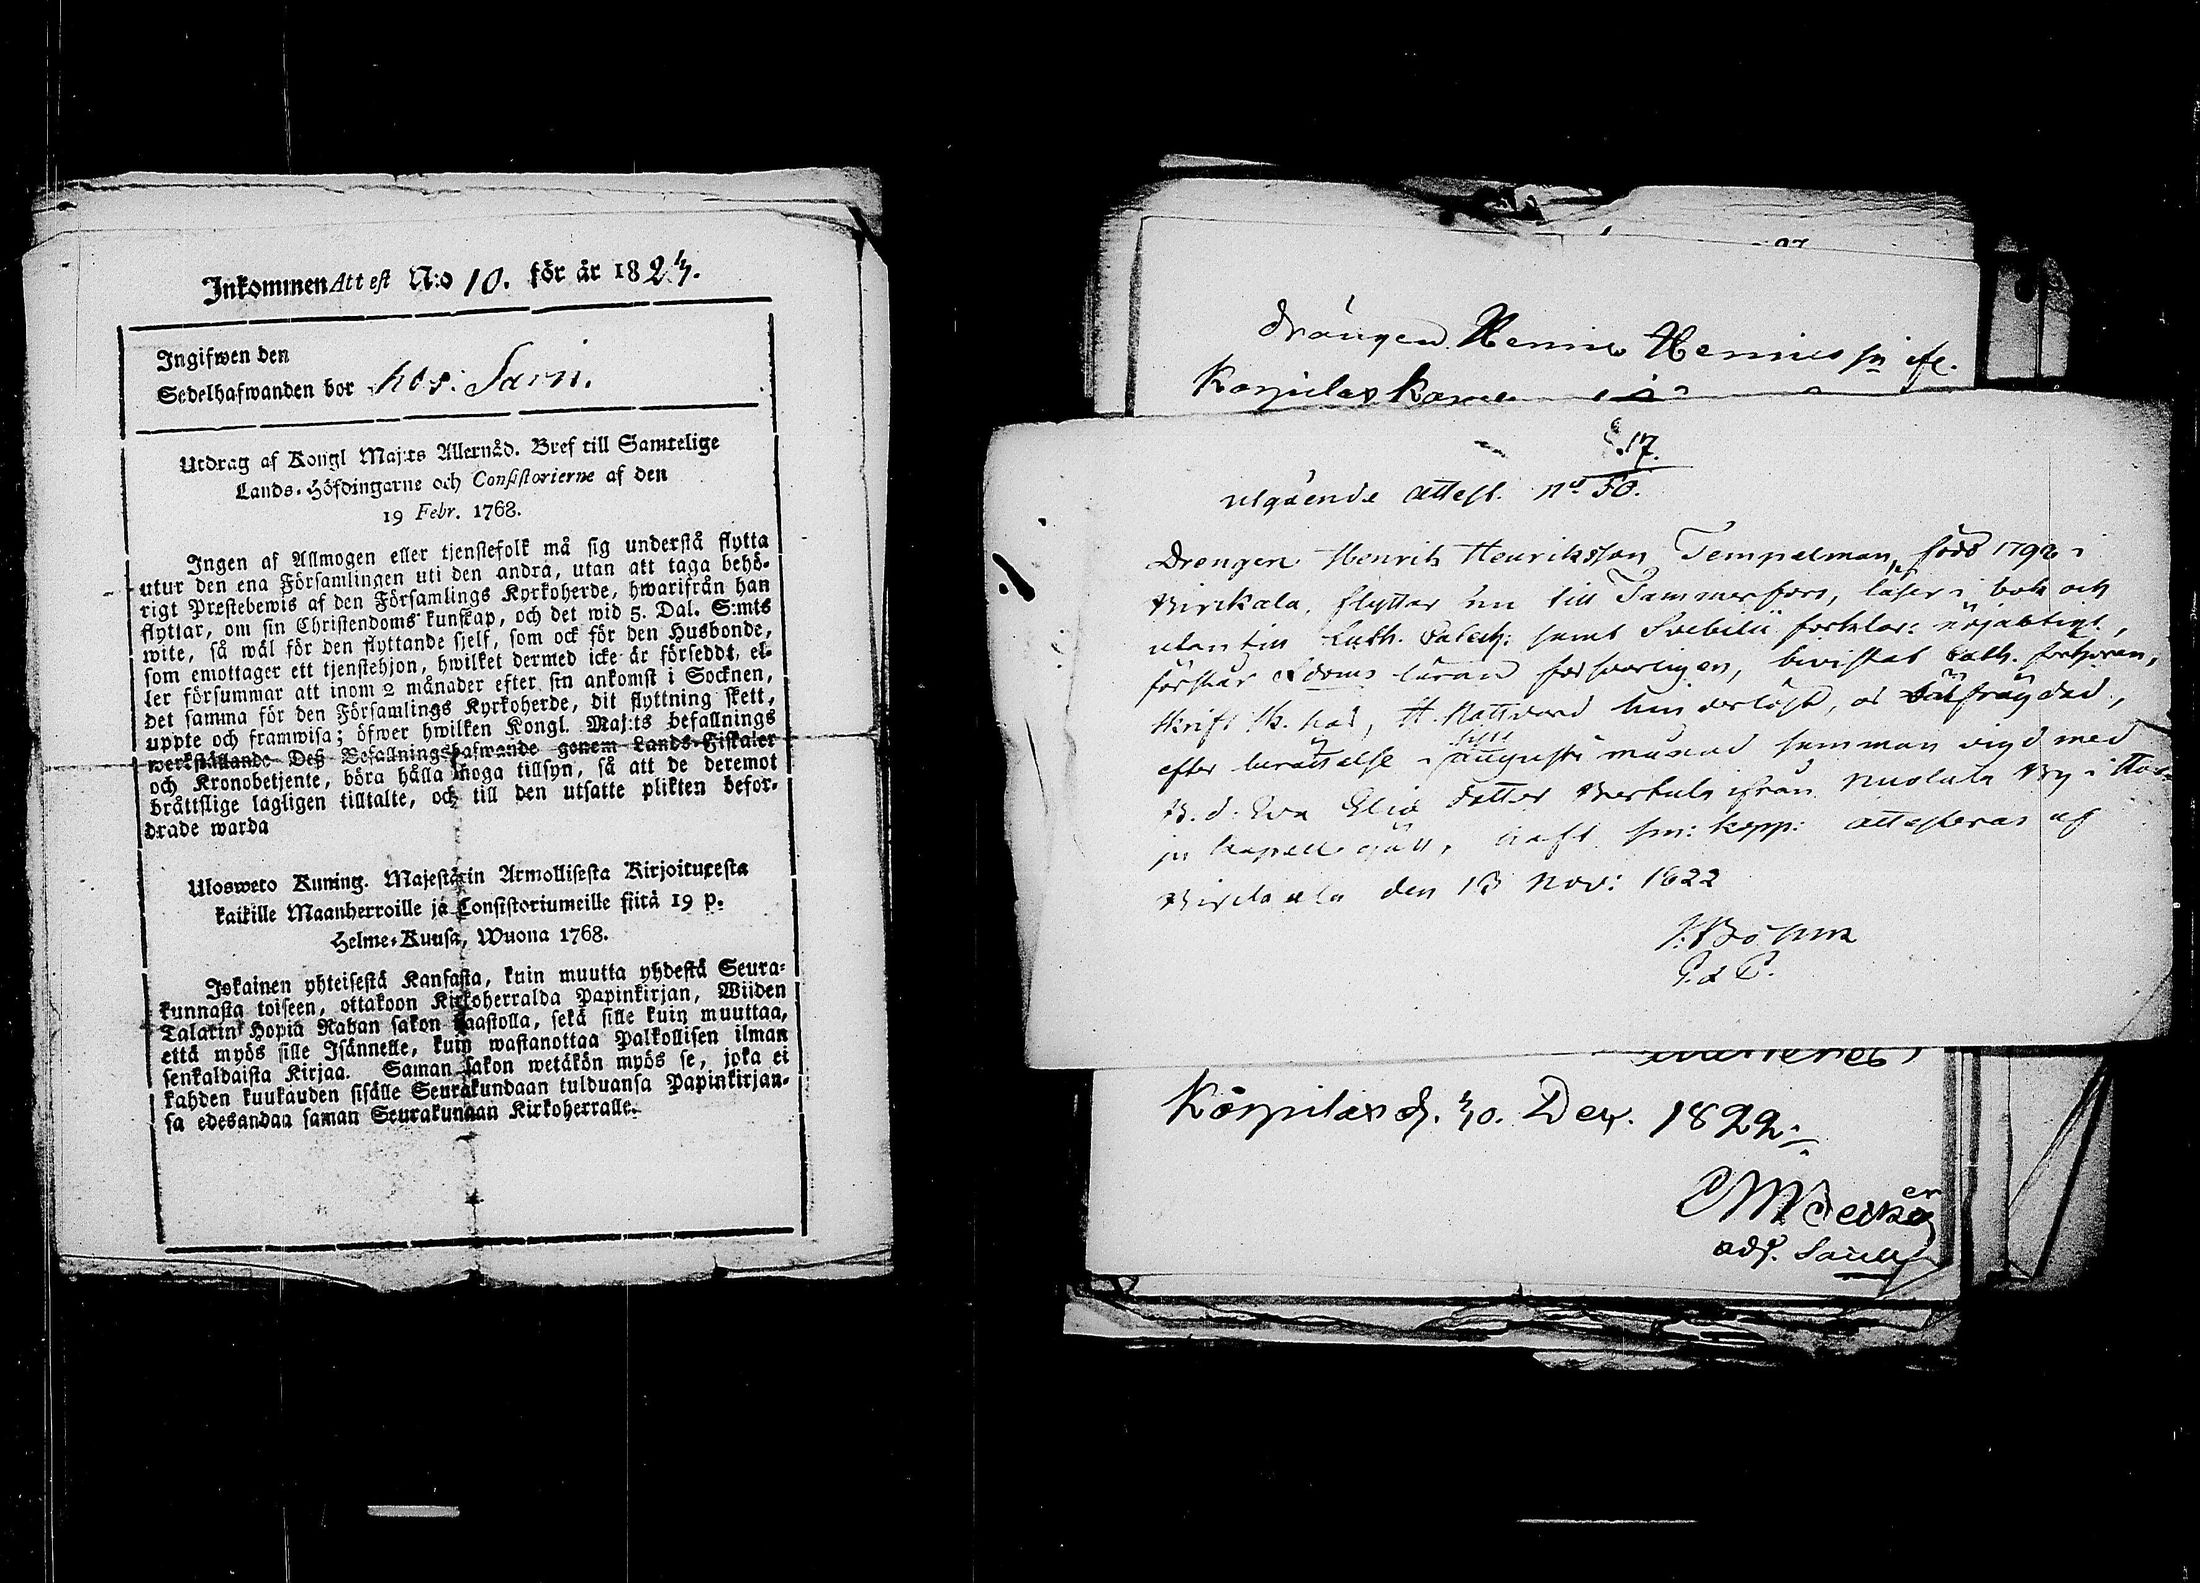 Inkommen Attest N:o 10. för år 1823.
Ingifwen den
Sedelhafwanden bor hos: Sarin.
Utdrag af Kongl Maj:ts Allernåd. Bref till Samtelige
Lands-Höfdingarne och Consistorierne af den
19 Febr. 1768.
Ingen af Allmogen eller tjenstefolk må sig understå flytta
utur den ena Församlingen uti den andra, utan att taga behö-
rigt Prestebewis af den Församlings Kyrkoherde, hwarifrån han
flyttar, om sin Christendoms kunskap, och det wid 5. Dal. S:mts
wite, så wäl för den flyttande sjelf, som ock för den Husbonde,
som emottager ett tjenstehjon, hwilket dermed icke är förseddt, el-
ler försummar att inom 2 månader efter sin ankomst i Socknen,
det samma för den Församlings Kyrkoherde, dit flyttning skett,
uppte och framwisa; öfwer hwilken Kongl. Maj:ts befallnings
werkställande Deß Befallningshafwande genem Lands-Fiskaler
och Kronobetjente, böra hålla noga tillsyn, så att de deremot
bråttslige lagligen tilltalte, och till den utsatte plikten befor-
drade warda
Ulosweto Kuning. Majestätin Armollisesta Kirjoituxesta
kaikille Maanherroille ja Consistoriumeille siitä 19 p.
Helme-Kuusa, Wuona 1768.
Jokainen yhteisestä Kansasta, kuin muutta yhdestä Seura-
kunnasta toiseen, ottakoon Kirkoherralda Papinkirjan, Wiiden
Talarin Hopia Rahan sakon haastolla, sekä sille kuin muuttaa,
että myös sille Isännelle, kuin wastanottaa Palkollisen ilman
senkaldaista Kirjaa. Saman sakon wetäkön myös se, joka ei
kahden kuukauden sisälle Seurakundaan tulduansa Papinkirjan-
sa edesandaa saman Seurakunnan Kirkoherralle.
Drängen Henric Henricss:n
17.
utgående attest. N:o 50.
Drengen Henrik Henriksson Tempelman, född 1792 i
Birckala, flyttar nu till Tammerfors, läser i bok och
utantill Luth. Catech: samt Svebilii forklar: nöjaktigt,
förstår läran försvarligen, bevistat Cath. förhören,
skrift
efter berättelse i sist augusti månad sammanvigd med
attesteras af
Birckala den 13 Nov: 1822
J. Böhm
Korpilax d. 30. Dec. 1822.
adj.